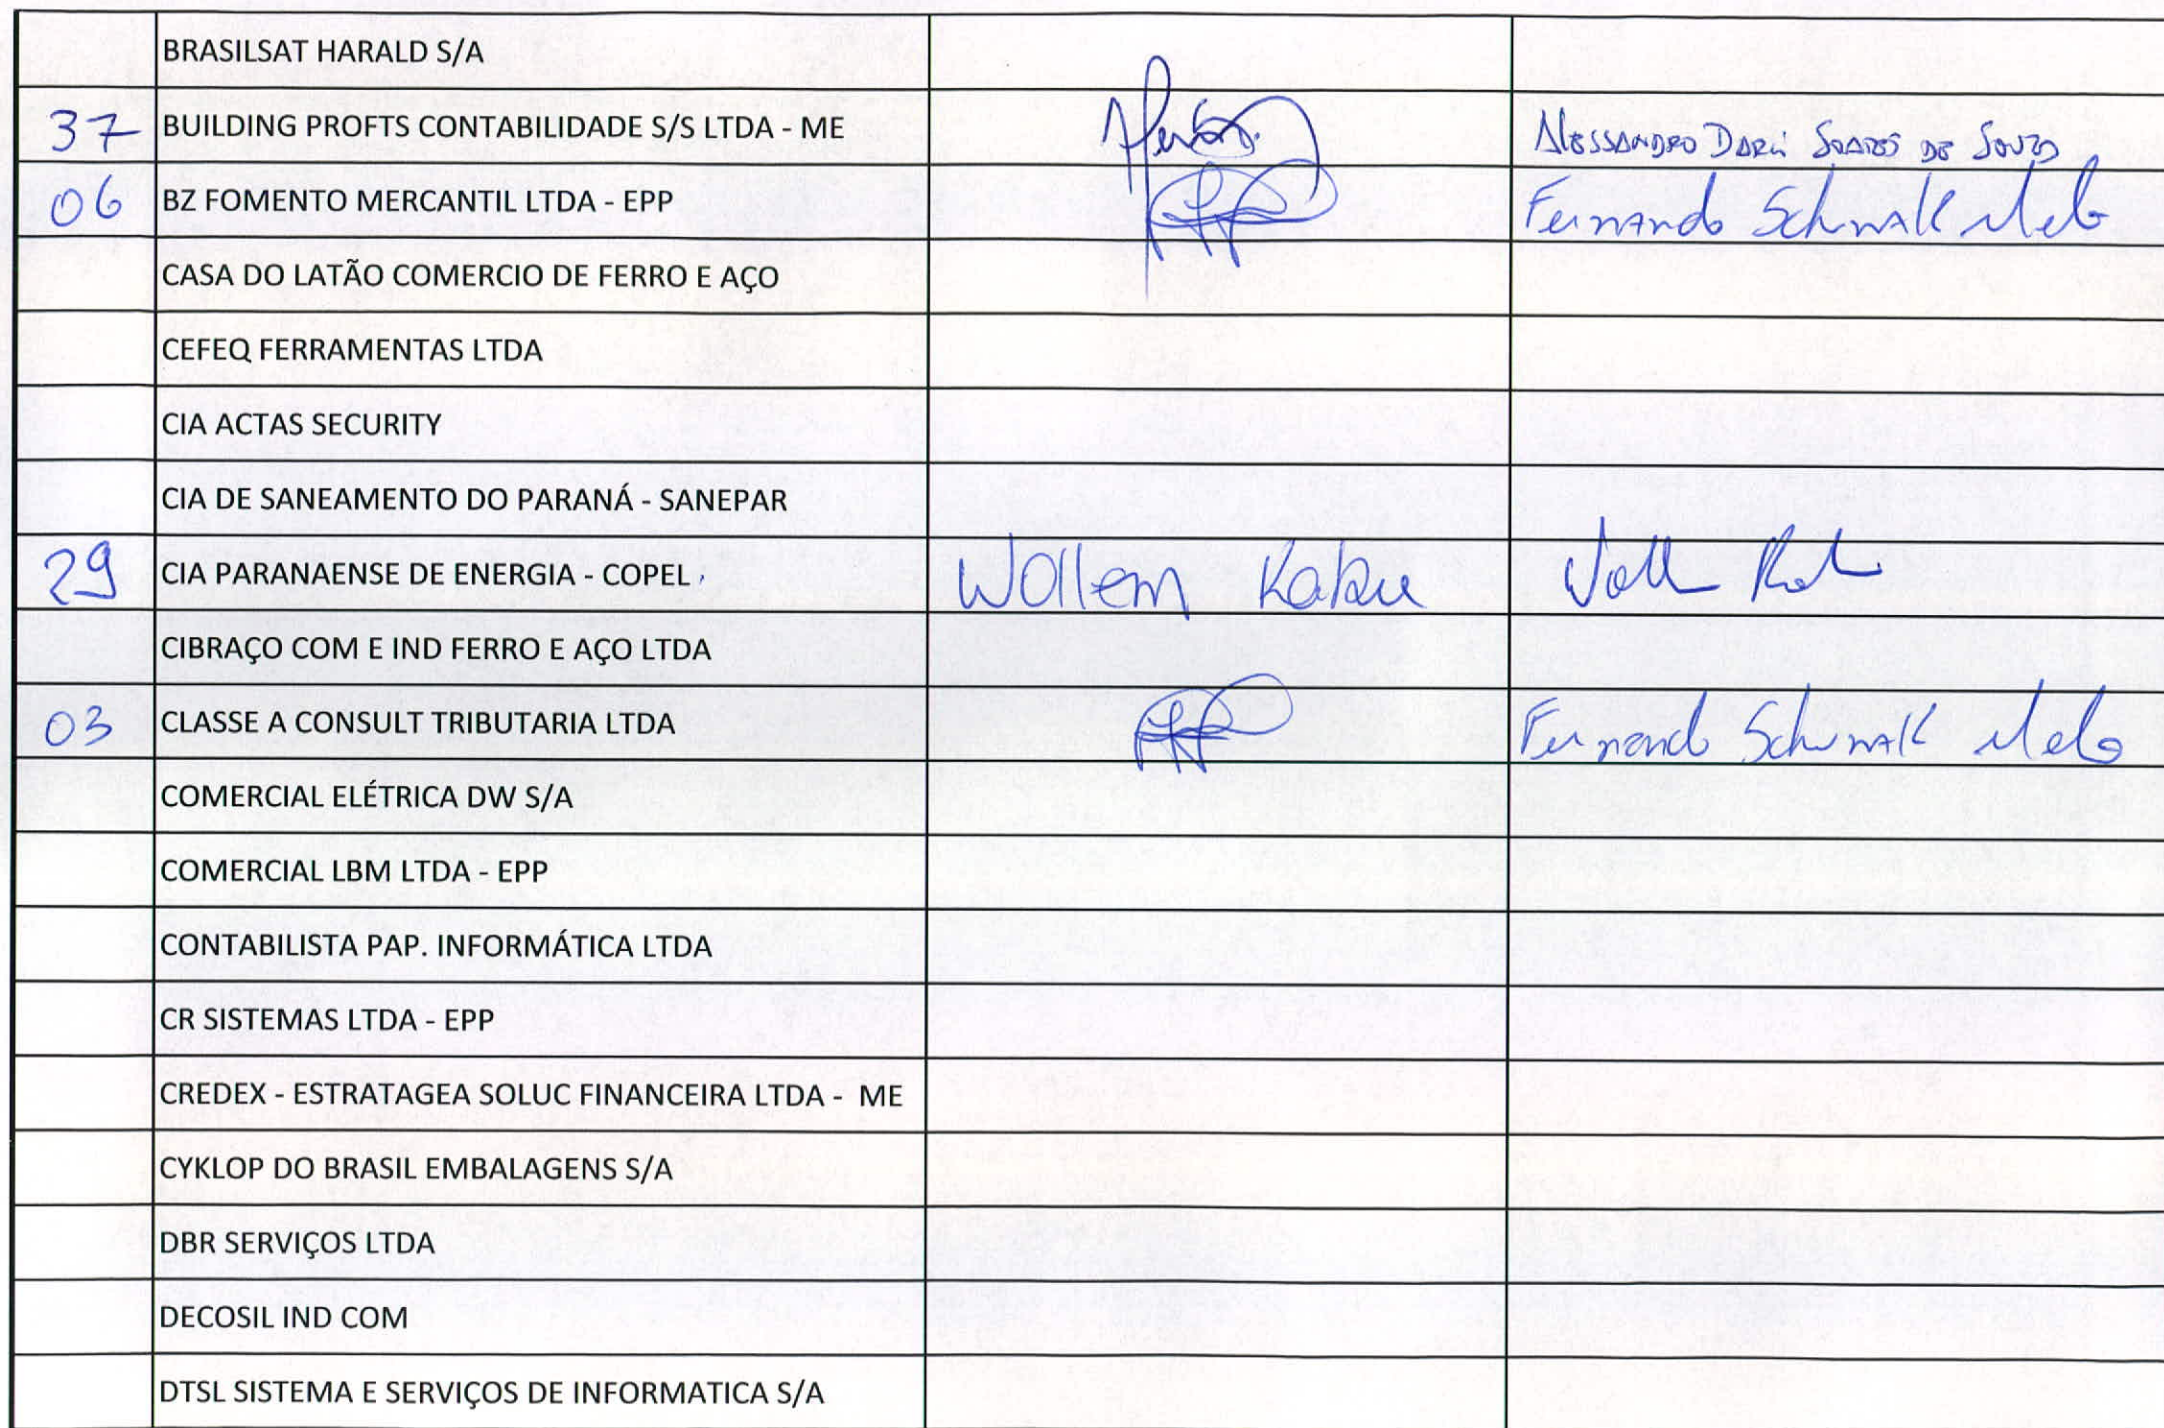 BRASILSAT HARALD S/A
37 BUILDING PROFTS CONTABILIDADE S/S LTDA - ME
06 BZ FOMENTO MERCANTIL LTDA - EPP Fernando Schunk Melo
CASA DO LATÃO COMERCIO DE FERRO E AÇO
CEFEQ FERRAMENTAS LTDA
CIA ACTAS SECURITY
CIA DE SANEAMENTO DO PARANÁ - SANEPAR
29 CIA PARANAENSE DE ENERGIA - COPEL Wollem
CIBRAÇO COM E IND FERRO E AÇO LTDA
03 CLASSE A CONSULT TRIBUTARIA LTDA Fernando Schunk Melo
COMERCIAL ELÉTRICA DW S/A
COMERCIAL LBM LTDA - EPP
CONTABILISTA PAP. INFORMÁTICA LTDA
CR SISTEMAS LTDA - EPP
CREDEX - ESTRATAGEA SOLUC FINANCEIRA LTDA - ME
CYKLOP DO BRASIL EMBALAGENS S/A
DBR SERVIÇOS LTDA
DECOSIL IND COM
DTSL SISTEMA E SERVIÇOS DE INFORMATICA S/A